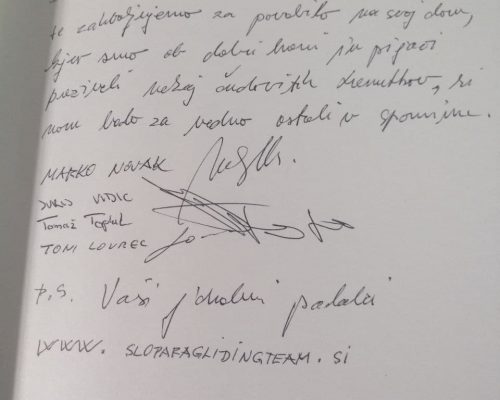 se zahvaljujemo za povabilo na svoj dom,
kjer smo ob dobri hrani in pijači
preživeli nekaj čudovitih trenutkov, ki
nam bodo za vedno ostali v spominu.
MARKO NOVAK
JURIJ VIDIC
Tomaž
TONI LOVREC
p.s. Vaši padalci
WWW. SLOPARAGLIDINGTEAM.SI